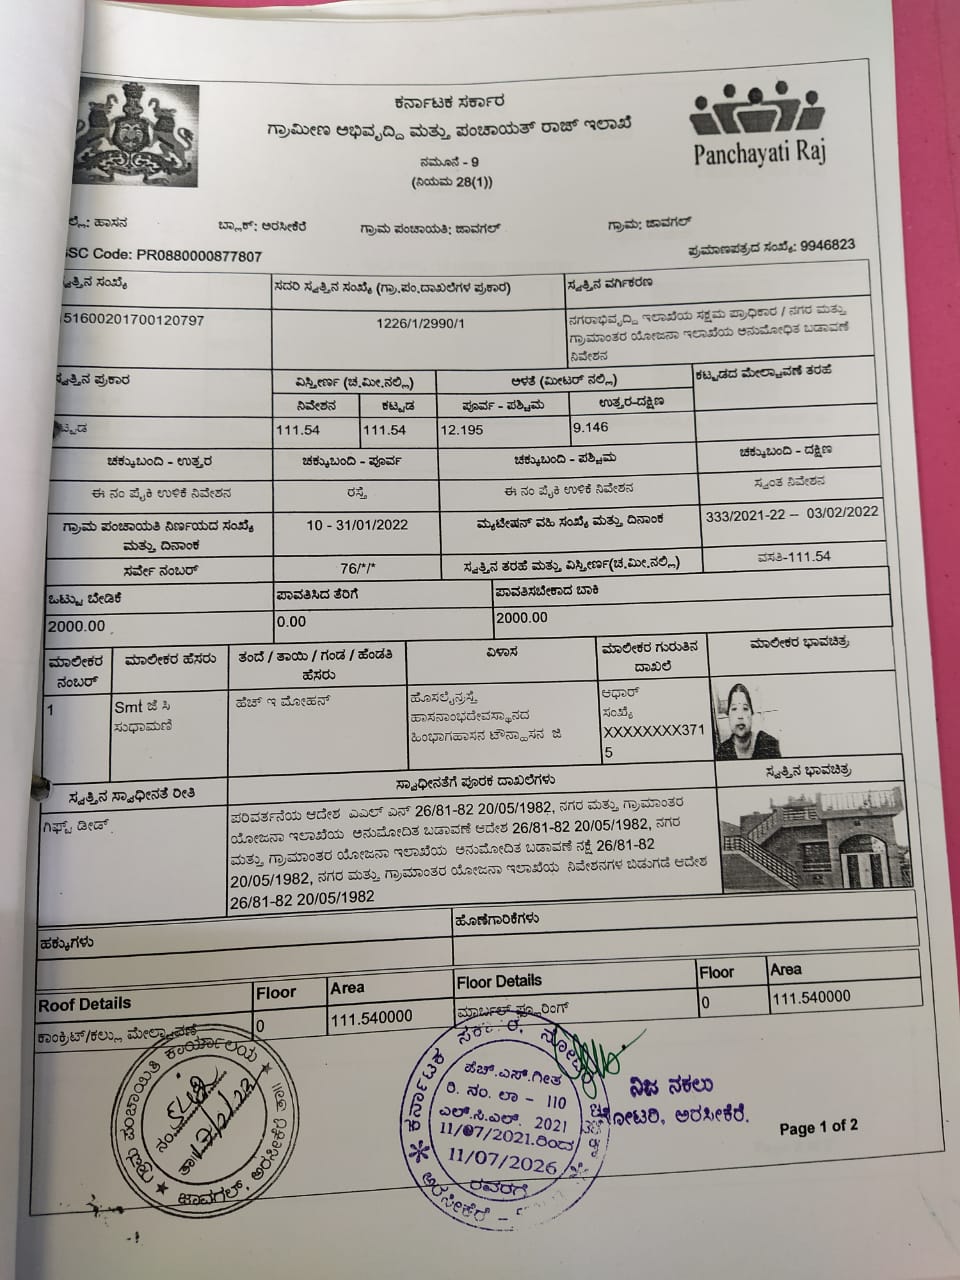 ಕರ್ನಾಟಕ ಸರ್ಕಾರ
ಗ್ರಾಮೀಣ ಅಭಿವೃದ್ದಿ ಮತ್ತು ಪಂಚಾಯತ್ ರಾಜ್ ಇಲಾಖೆ
Panchayati Raj
ನಮೂನೆ - 9
(ನಿಯಮ 28(1))
ಲ್ಲೆ: ಹಾಸನ ಬ್ಲಾಕ್: ಅರಸೀಕೆರೆ ಗ್ರಾಮ ಪಂಚಾಯತಿ: ಜಾವಗಲ್ ಗ್ರಾಮ: ಜಾವಗಲ್
SC Code: PR0880000877807 ಪ್ರಮಾಣಪತ್ರದ ಸಂಖ್ಯೆ: 9946823
ಸ್ವತ್ತಿನ ಸಂಖ್ಯೆ ಸದರಿ ಸ್ವತ್ತಿನ ಸಂಖ್ಯೆ (ಗ್ರಾ.ಪಂ.ದಾಖಲೆಗಳ ಪ್ರಕಾರ) ಸ್ವತ್ತಿನ ವರ್ಗೀಕರಣ
51600201700120797 1226/1/2990/1 ನಗರಾಭಿವೃದ್ದಿ ಇಲಾಖೆಯ ಸಕ್ಷಮ ಪ್ರಾಧಿಕಾರ / ನಗರ ಮತ್ತು
ಗ್ರಾಮಾಂತರ ಯೋಜನಾ ಇಲಾಖೆಯ ಅನುಮೋಧಿತ ಬಡಾವಣೆ
ನಿವೇಶನ
ಸ್ವತ್ತಿನ ಪ್ರಕಾರ ವಿಸ್ತೀರ್ಣ (ಚ.ಮೀ.ನಲ್ಲಿ) ಅಳತೆ (ಮೀಟರ್ ನಲ್ಲಿ) ಕಟ್ಟಡದ ಮೇಲ್ಚಾವಣೆ ತರಹೆ
ನಿವೇಶನ ಕಟ್ಟಡ ಪೂರ್ವ - ಪಶ್ಚಿಮ ಉತ್ತರ-ದಕ್ಷಿಣ
ಟ್ಟಡ 111.54 111.54 12.195 9.146
ಚಕ್ಕುಬಂದಿ - ಉತ್ತರ ಚಕ್ಕುಬಂದಿ - ಪೂರ್ವ ಚಕ್ಕುಬಂದಿ - ಪಶ್ಚಿಮ ಚಕ್ಕುಬಂದಿ - ದಕ್ಷಿಣ
ಈ ನಂ ಪೈಕಿ ಉಳಿಕೆ ನಿವೇಶನ ರಸ್ತೆ ಈ ನಂ ಪೈಕಿ ಉಳಿಕೆ ನಿವೇಶನ ಸ್ವಂತ ನಿವೇಶನ
ಗ್ರಾಮ ಪಂಚಾಯತಿ ನಿರ್ಣಯದ ಸಂಖ್ಯೆ 10 - 31/01/2022 ಮ್ಯುಟೇಷನ್ ವಹಿ ಸಂಖ್ಯೆ ಮತ್ತು ದಿನಾಂಕ 333/2021-22 -- 03/02/2022
ಮತ್ತು ದಿನಾಂಕ
ಸರ್ವೇ ನಂಬರ್ 76/*/* ಸ್ವತ್ತಿನ ತರಹೆ ಮತ್ತು ವಿಸ್ತೀರ್ಣ(ಚ.ಮೀ.ನಲ್ಲಿ) ವಸತಿ-111.54
ಒಟ್ಟು ಬೇಡಿಕೆ ಪಾವತಿಸಿದ ತೆರಿಗೆ ಪಾವತಿಸಬೇಕಾದ ಬಾಕಿ
2000.00 0.00 2000.00
ಮಾಲೀಕರ ನಂಬರ್ ಮಾಲೀಕರ ಹೆಸರು ತಂದೆ / ತಾಯಿ / ಗಂಡ / ಹೆಂಡತಿ ಹೆಸರು ವಿಳಾಸ ಮಾಲೀಕರ ಗುರುತಿನ ದಾಖಲೆ ಮಾಲೀಕರ ಭಾವಚಿತ್ರ
1 Smt ಜೆ ಸಿ ಹೆಚ್ ಇ ಮೋಹನ್ ಹೊಸಲೈನ್ರಸ್ತೆ ಆಧಾರ್
ಸುಧಾಮಣಿ ಹಾಸನಾಂಭದೇವಸ್ಥಾನದ ಸಂಖ್ಯೆ
ಹಿಂಭಾಗಹಾಸನ ಟೌನ್ಹಾಸನ ಜಿ XXXXXXXX371
5
ಸ್ವತ್ತಿನ ಸ್ವಾಧೀನತೆ ರೀತಿ ಸ್ವಾಧೀನತೆಗೆ ಪೂರಕ ದಾಖಲೆಗಳು ಸ್ವತ್ತಿನ ಭಾವಚಿತ್ರ
ಗಿಫ್ಟ್ ಡೀಡ್ ಪರಿವರ್ತನೆಯ ಆದೇಶ ಎಎಲ್ ಎನ್ 26/81-82 20/05/1982, ನಗರ ಮತ್ತು ಗ್ರಾಮಾಂತರ
ಯೋಜನಾ ಇಲಾಖೆಯ ಅನುಮೋದಿತ ಬಡಾವಣೆ ಆದೇಶ 26/81-82 20/05/1982, ನಗರ
ಮತ್ತು ಗ್ರಾಮಾಂತರ ಯೋಜನಾ ಇಲಾಖೆಯ ಅನುಮೋದಿತ ಬಡಾವಣೆ ನಕ್ಷೆ 26/81-82
20/05/1982, ನಗರ ಮತ್ತು ಗ್ರಾಮಾಂತರ ಯೋಜನಾ ಇಲಾಖೆಯ ನಿವೇಶನಗಳ ಬಿಡುಗಡೆ ಆದೇಶ
26/81-82 20/05/1982
ಹಕ್ಕುಗಳು ಹೊಣೆಗಾರಿಕೆಗಳು
Roof Details Floor Area Floor Details Floor Area
ಕಾಂಕ್ರಿಟ್/ಕಲ್ಲು ಮೇಲ್ಚಾವಣೆ 0 111.540000 ಮಾರ್ಬಲ್ ಫ್ಲೂರಿಂಗ್ 0 111.540000
ಗ್ರಾಮ ಪಂಚಾಯಿತಿ ಕಾರ್ಯಾಲಯ
ನಂ.
ತಾ
ಜಾವಗಲ್, ಅರಸೀಕೆರೆ ತಾ॥
ಕರ್ನಾಟಕ ಸರ್ಕಾರ, ನೋಟರಿ
ಹೆಚ್.ಎಸ್.ಗೀತ
ರಿ. ನಂ. ಲಾ - 110
ಎಲ್.ಸಿ.ಎಲ್. 2021
11/07/2021.ರಿಂದ
11/07/2026
ರವರಗೆ
ಅರಸೀಕೆರೆ
ನಿಜ ನಕಲು
ನೋಟರಿ, ಅರಸೀಕೆರೆ.
Page 1 of 2